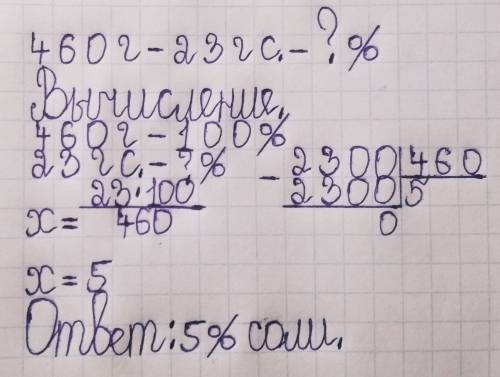 460г - 23г с. - ? %
Вычисление.
460г - 100%
23г с. - ? %
x = 23·100
460
- 2300 460
2300 5
0
x = 5
Ответ: 5% соли.